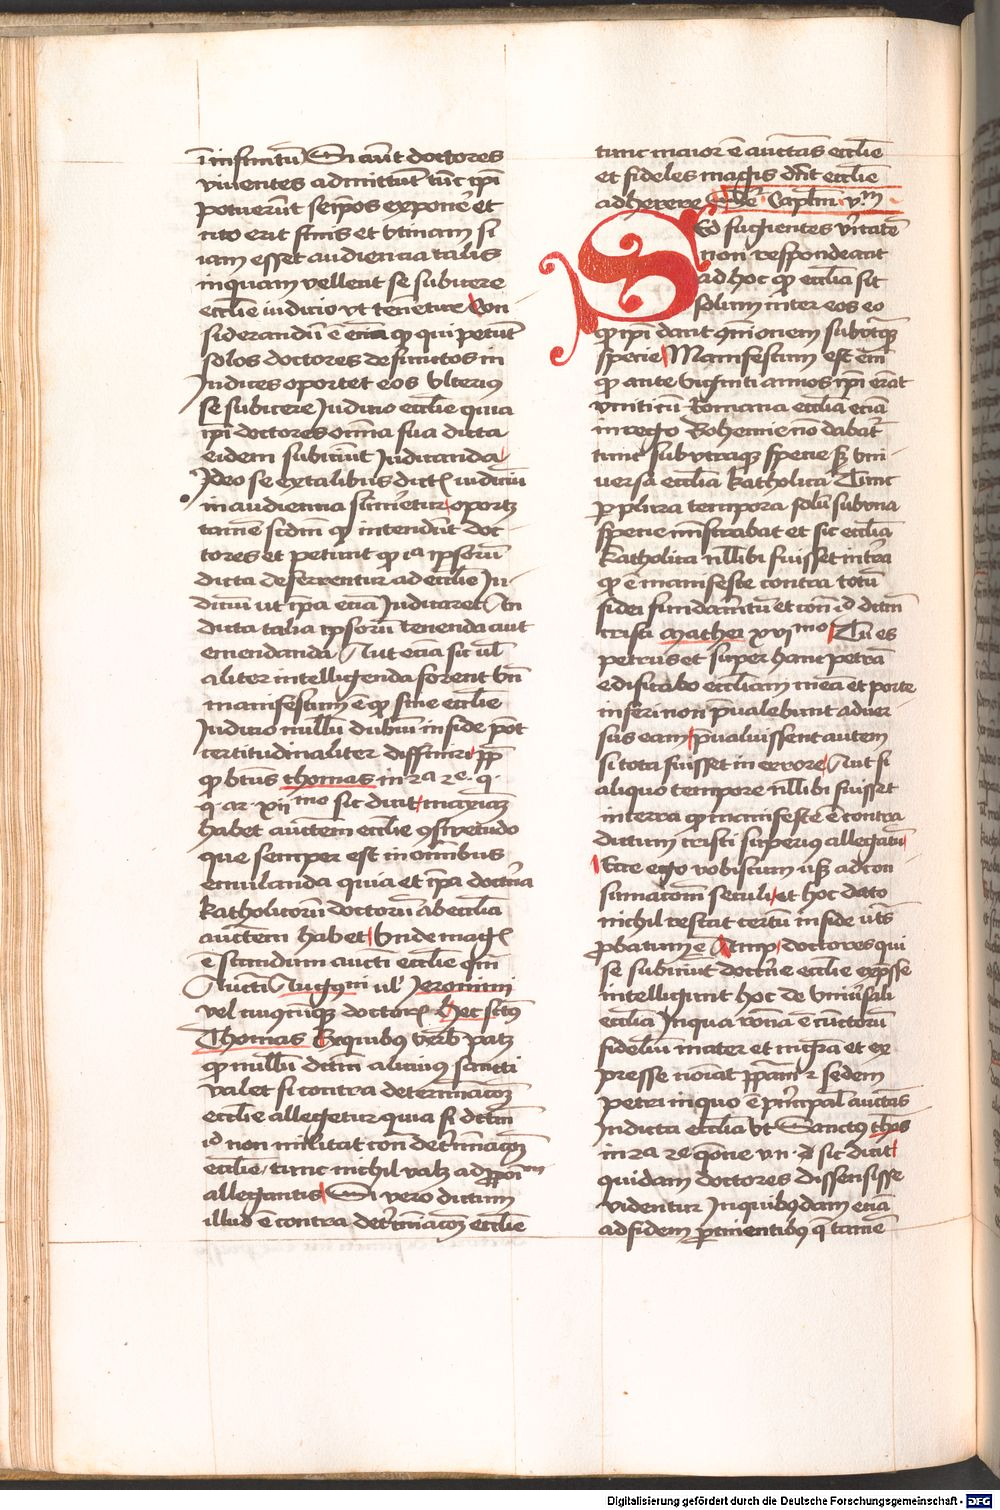 ī infinitū Si aūt doctores
viventes admittūt tūc ipi
potuerūt seip̄os exponere et
cito erit finis et vtinam si
iam esset audiencia talis
inquam vellent se subicere
ecclīe iudicio vt tenētur Con
siderandū ē eciā ꝙ qui petūt
solos doctores defunctos in
Judices oportet eos vlterius
se subicere Judicio ecclīe quia
ipi doctores om̄ia sua dicta
eidem subiciūt Judicanda
Jdeo se ex talibus dictꝭ iudiciū
in audiencia sūmeretur oportꝫ
tamē scdm̄ ꝙ intendūt doc
tores et petūt ꝙ ipsorū
dicta deferrentur ad ecclīe Ju
diciū ut ipa eciā Judicaret An
dicta talia ipsorū tenenda aut
emendanda Aut eciā sic ul̄
aliter intelligenda forent Vn̄
manifestum ē ꝙ sine ecclīe
Judicio nullū dubiū in fide pōt
certitudinaliter diffiniri pp̄
ꝙ btūs thomas in 2a 2e q
q ar xii mo sic dicit maximā
habet auctem ecclīe ꝯsuetudo
que semper est in om̄ibus
emulanda quia et ipa doctīa
katholicorū doctorū ab ecclīa
auctem habet Vnde magꝭ
ē standum aucti ecclīe qm̄
Aucti Augusni ul̄ Jeronimi
vel cuiuscūqꝫ doctorꝭ hec sctūs
Thomas Ex quibus verbis patꝫ
ꝙ nullū dictū alicuius sancti
valet si contra determinacōꝫ
ecclīe allegetur quia si dictū
id non militat con̄ determinacōꝫ
ecclīe tunc nichil valꝫ ad ppoītm
allegantis Si vero dictum
illud ē contra determinacōꝫ ecclīe
tunc maior ē auctas ecclīe
et fideles magis dn̄t ecclīe
adherere Caplm̄ vm
Sed fugientes v̄itatē
non respondeant
ad hoc ꝙ ecclīa sit
solum inter eos eo
ꝙ ipi dant ꝯmunionem sub utraqꝫ
specie Manifestum est eīm
ꝙ ante viginti annos ipi erāt
vniti cū Romana ecclīa eciā
in regno Bohemie nō dabat̄
tunc sub vtraqꝫ specie sꝫ vni
versa ecclīa katholica Tunc
p plura tempora solū sub vna
specie ministrabat et sic ecclīa
katholica nullibi fuisset in terra
ꝙ ē manifeste contra totū
fidei fundamētū et con̄ id dictm̄
cristi mathei xvi mo Tu es
petrus et super hanc petrā
edificabo ecclīam meā et porte
inferi non p̄ualebunt aduer
sus eam p̄ualuissent autem
si tota fuisset in errore Aut si
aliquo tempore nullibi fuisset
in terra ꝙ manifeste ē contra
dictum cristi superius allegatū
Ecce ego vobiscum usqꝫ ad con
sumacōm seculi et hoc dato
nichil restat certū in fide uts
p̄batum ē Item doctores qui
se subiciūt doctrīe ecclīe exp̄sse
intelligunt hoc de vniūsali
ecclīa Jn qua romā ē cunctorū
fideliū mater et mgrā et ex
presse noīat ppam̄ 2 sedem
petri in quo ē p̄ncipal̄ auctas
Judicta ecclīa vt Sanctus thōs
in 2a 2e qōne vn d sic dicit
quidam doctores dissensisse
videntur Jn quibusdam eciā
ad fidem p̄tinentibus q tamē